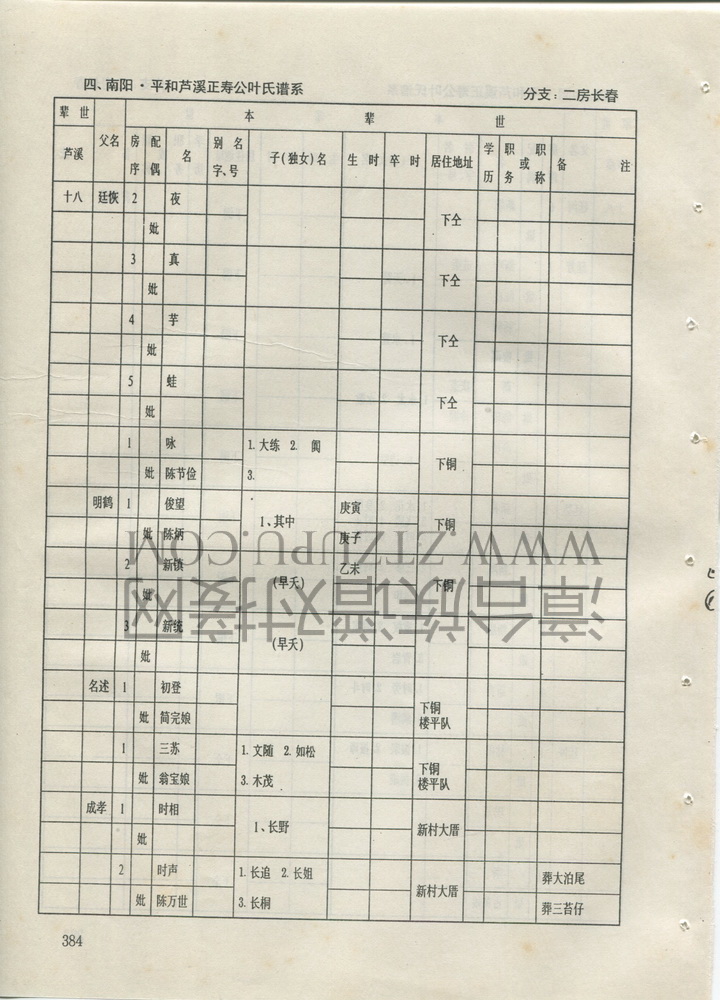 四、南阳·平和芦溪正寿公叶氏谱系 分支：二房长春
辈世 本辈世
芦溪 父名 房序 配偶 名 别名字、号 子(独女)名 生时 卒时 居住地址 学历 职务或职称 备注
十八 廷恢 2 夜 下仝
妣
3 真 下仝
妣
4 芋 下仝
妣
5 蛙 下仝
妣
1 咏 1.大练 2. 下铜
妣 陈节俭 3.
明鹤 1 俊望 1、其中 庚寅 下铜
妣 陈炳 庚子
2 新镇 (早夭) 乙未 下铜
妣
3 新统 (早夭)
妣
名述 1 初登 下铜楼平队
妣 简完娘
1 三苏 1.文随 2.如松 下铜楼平队
妣 翁宝娘 3.木茂
成孝 1 时相 1、长野 新村大厝
妣
2 时声 1.长追 2.长姐 新村大厝 葬大泊尾
妣 陈万世 3.长桐 葬三苔仔
384
WWW.ZTZUPU.COM
漳台族谱对接网